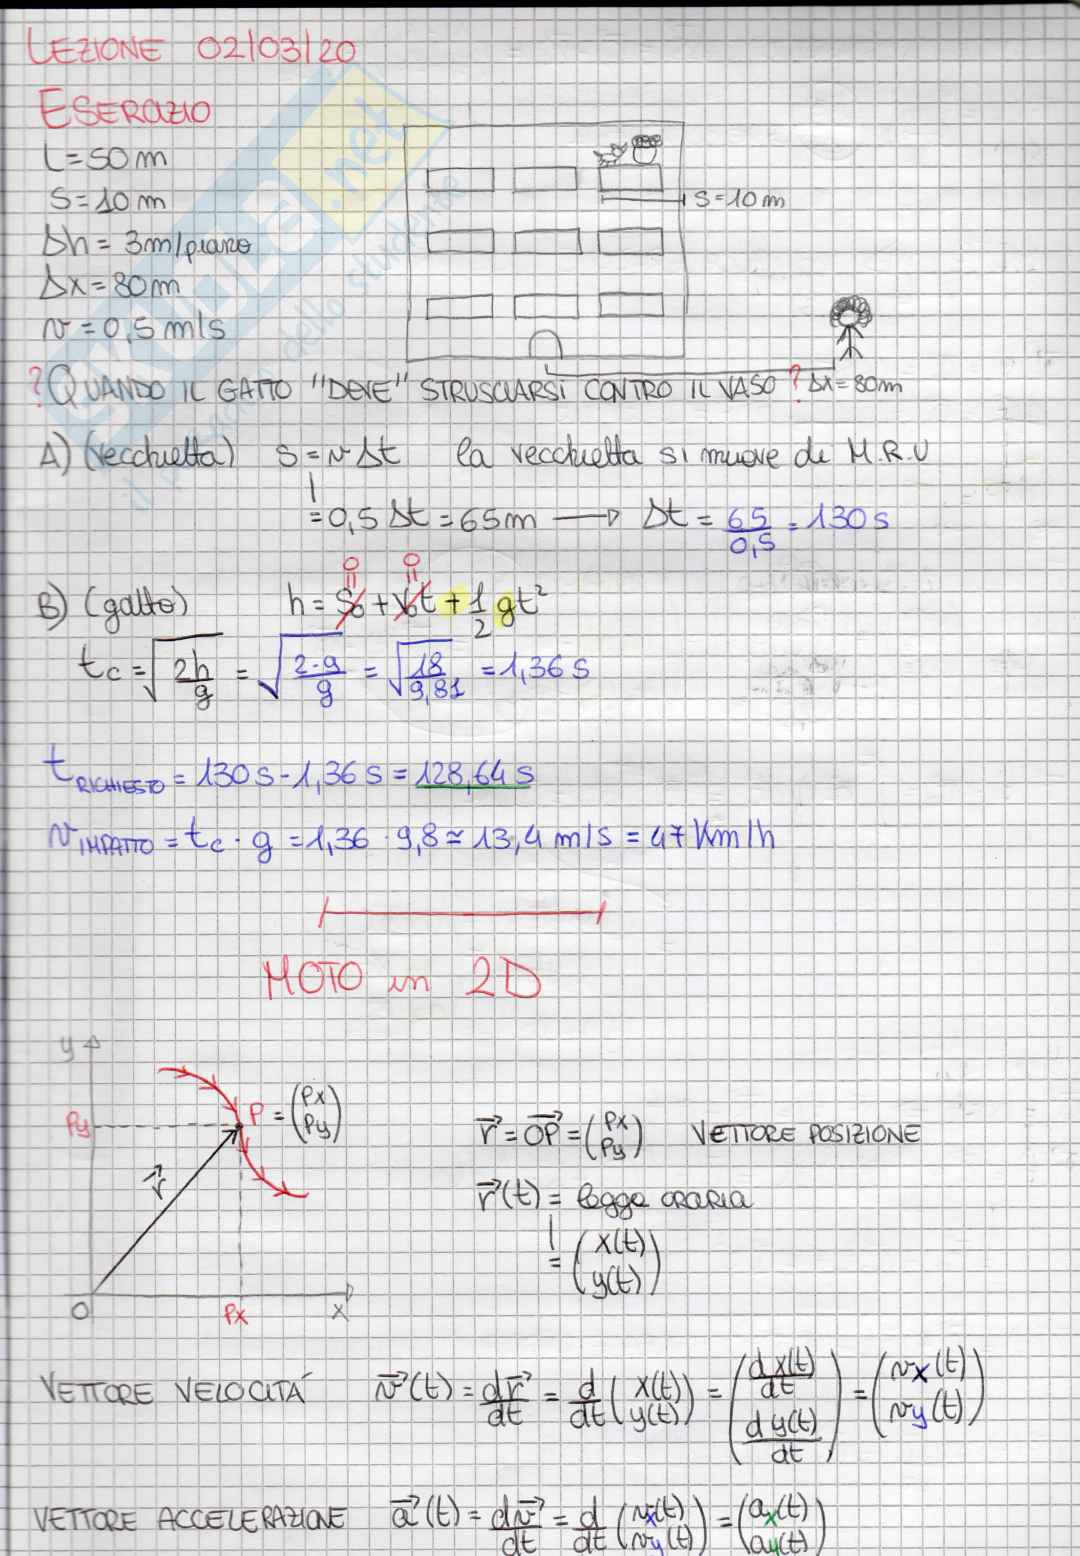 LEZIONE 02/03/20
ESERCIZIO
L=50m
S=10m
S=10m
Δh=3m/piano
Δx=80m
v=0,5m/s
?QUANDO IL GATTO "DEVE" STRUSCIARSI CONTRO IL VASO? Δx=80m
A) (vecchietta) S=vΔt la vecchietta si muove di M.R.U
=0,5Δt=65m → Δt = 65/0,5 = 130s
0 0
B) (gatto) h = S₀ + v₀t + 1/2 gt²
tc = √(2h/g) = √(2·9/g) = √(18/9,81) = 1,36s
tRICHIESTO = 130s-1,36s = 128,64s
vIMPATTO = tc · g = 1,36 · 9,8 ≃ 13,4 m/s = 47 Km/h
MOTO in 2D
y
Py P = (Px Py)
r⃗ = OP⃗ = (Px Py) VETTORE POSIZIONE
r⃗
r⃗(t) = legge oraria
= (x(t) y(t))
O Px x
VETTORE VELOCITÀ v⃗(t) = dr⃗/dt = d/dt (x(t) y(t)) = (dx(t)/dt dy(t)/dt) = (vx(t) vy(t))
VETTORE ACCELERAZIONE a⃗(t) = dv⃗/dt = d/dt (vx(t) vy(t)) = (ax(t) ay(t))
SKUOLA.net
dello studente